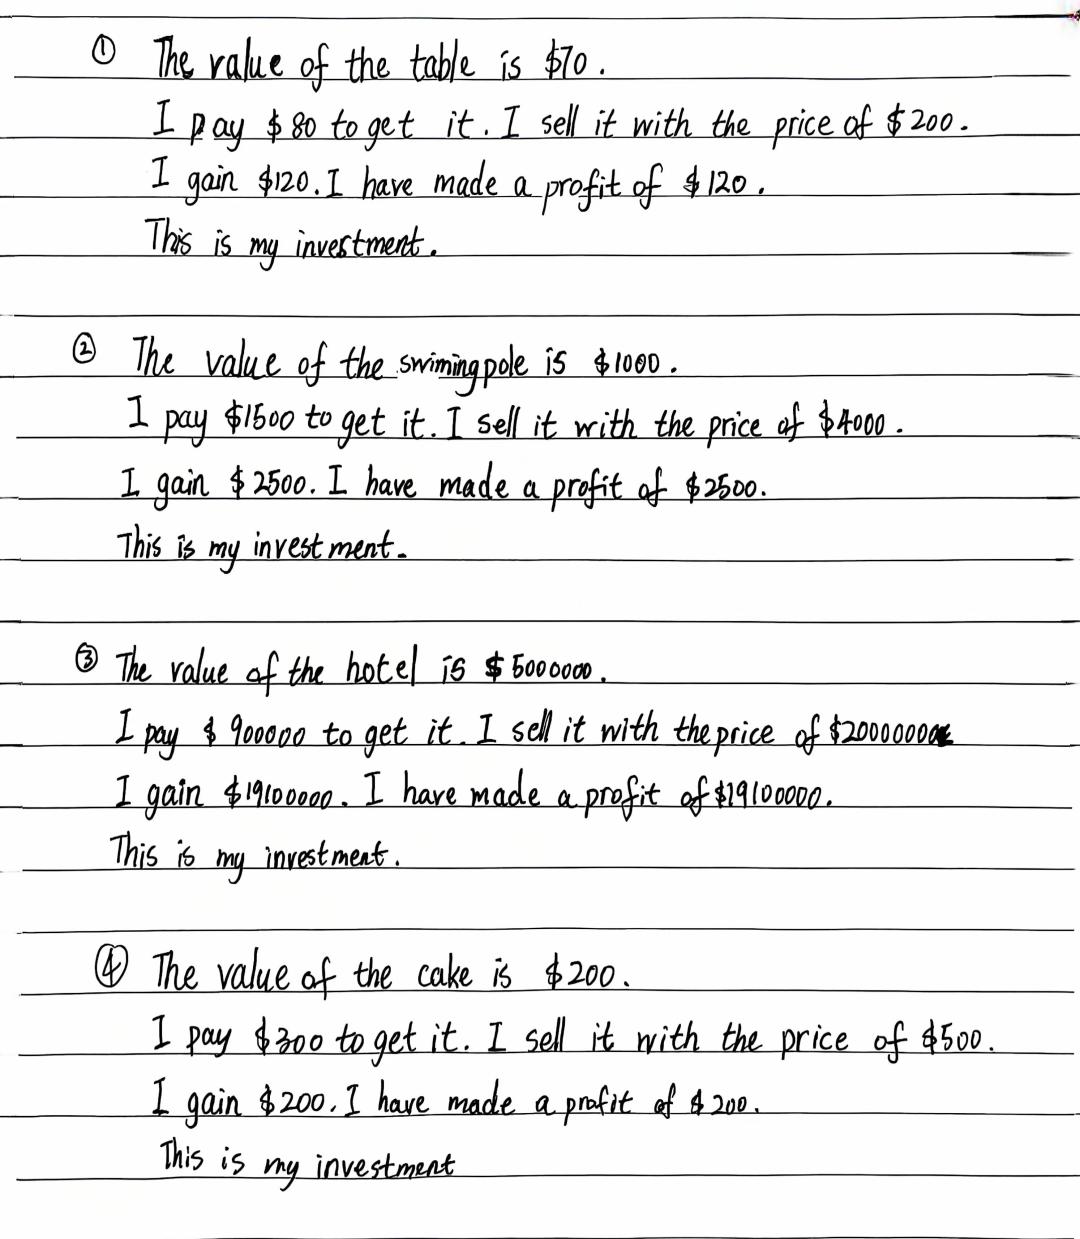 ① The value of the table is $70.
I pay $80 to get it. I sell it with the price of $200.
I gain $120. I have made a profit of $120.
This is my investment.
② The value of the swimingpole is $1000.
I pay $1500 to get it. I sell it with the price of $4000.
I gain $2500. I have made a profit of $2500.
This is my investment.
③ The value of the hotel is $5000000.
I pay $900000 to get it. I sell it with the price of $20000000
I gain $19100000. I have made a profit of $19100000.
This is my investment.
④ The value of the cake is $200.
I pay $300 to get it. I sell it with the price of $500.
I gain $200. I have made a profit of $200.
This is my investment